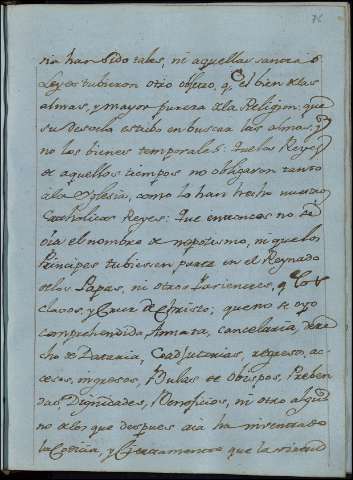 76
nia han sido tales, ni aquellas sancra o
Leyes tubieron otro objeto, q̃ el bien de las
almas, y mayor pureza de la Religion: que
su desvelo estubo en buscar las almas, y
no los bienes temporales: Que los Reyes
de aquellos tiempos no obligaron tanto
à la Yglesia, como lo han hecho nuestros
Catholicos Reyes: Que entonces no se
oìa el nombre de nepotismo, ni que los
Principes tubiesen parte en el Reynado
de los Papas, ni otros Parientes, q̃ los
clavos, y Cruz de Christo; que no se oyò
comprehendida Annata, cancelaria, dere
cho de Dataria, Coadjutorias, regreso, ac
cesos, ingresos, Bulas de Obispos, Preben
das, Dignidades, Beneficios, ni otro algũ
no de los que despues aca ha inventado
la Codicia, y Ciertamente que la